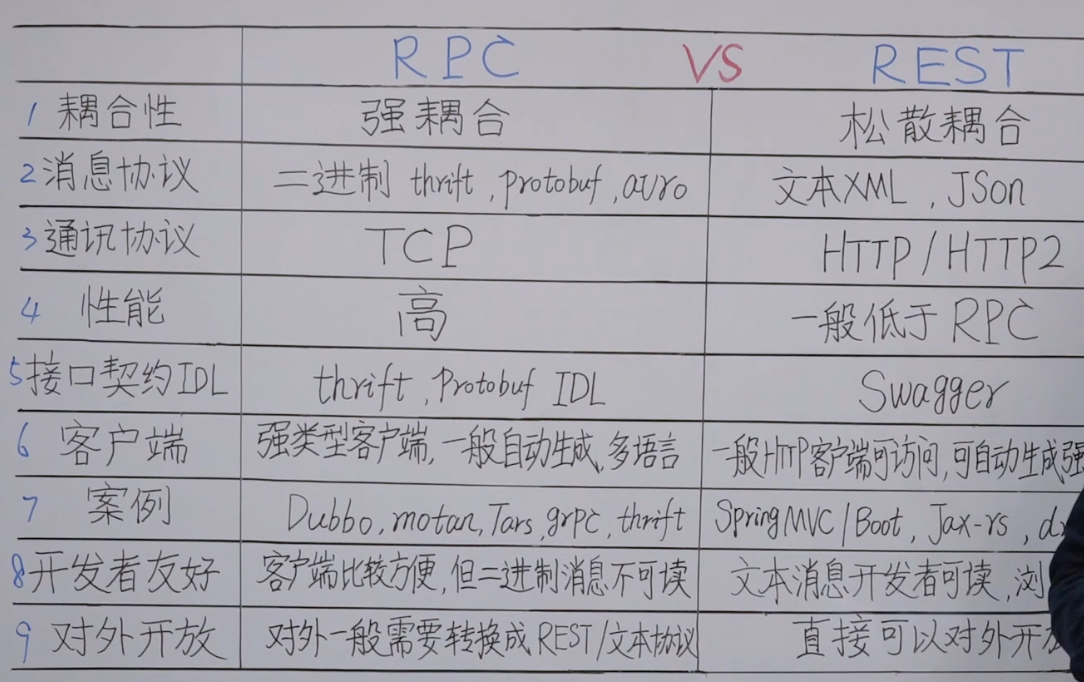 RPC VS REST
1 耦合性 强耦合 松散耦合
2 消息协议 二进制 thrift, protobuf, avro 文本XML, JSon
3 通讯协议 TCP HTTP/HTTP2
4 性能 高 一般低于RPC
5 接口契约IDL thrift, Protobuf IDL Swagger
6 客户端 强类型客户端, 一般自动生成, 多语言 一般HTTP客户端可访问, 可自动生成强
7 案例 Dubbo, motan, Tars, grpc, thrift SpringMVC/Boot, Jax-rs,
8 开发者友好 客户端比较方便, 但二进制消息不可读 文本消息开发者可读, 浏
9 对外开放 对外一般需要转换成REST/文本协议 直接可以对外开